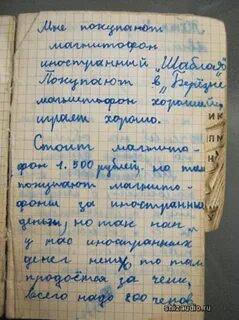 Мне покупают
магнитофон
иностранный „Шабла
Покупают в „Берёзке
магнитофон хороший,
играет хорошо.
Стоит магнито-
фон 1.500 рублей, но там
покупают магнито-
фоны за иностранные
деньги, но так как
у нас иностранных
денег нет, то там
продаётся за чеки,
всего надо 800 чеков
shizaudio.ru